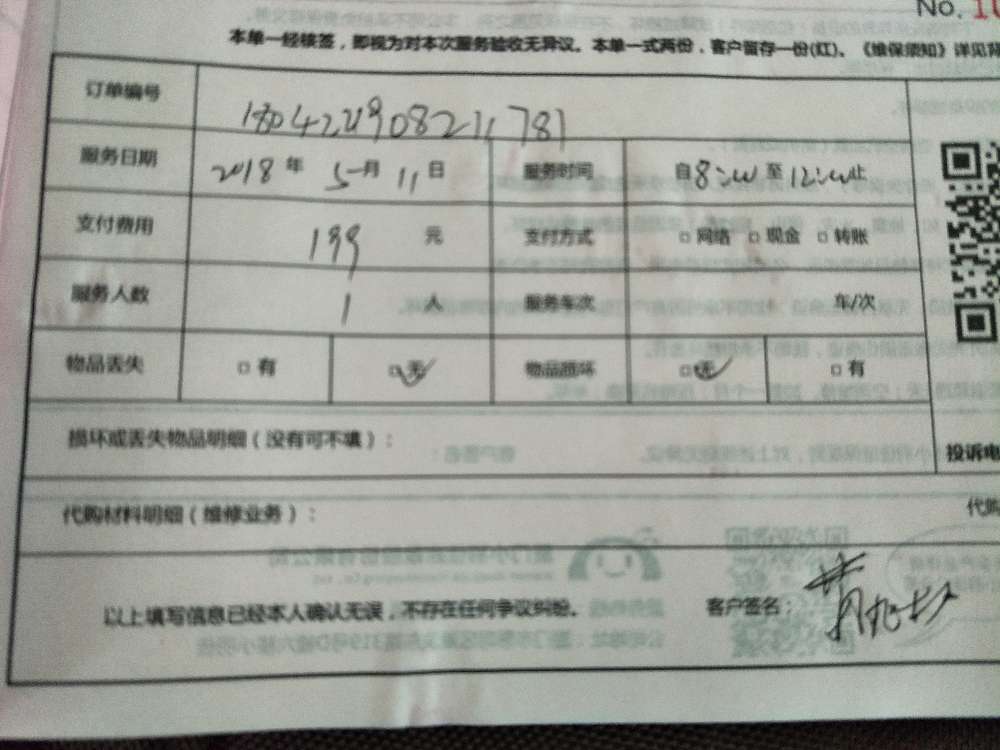 No. 10
本单一经核签，即视为对本次服务验收无异议。本单一式两份，客户留存一份(红)。《维保须知》详见背
订单编号
服务日期 2018 年 5 月 11 日 服务时间 自 8:00 至 12:00 止
支付费用 199 元 支付方式 □ 网络 □ 现金 □ 转账
服务人数 1 人 服务车次 车/次
物品丢失 □ 有 □ 无 物品损坏 □ 无 □ 有
损坏或丢失物品明细（没有可不填）：
投诉电
代购材料明细（维修业务）：
代购
以上填写信息已经本人确认无误，不存在任何争议纠纷。 客户签名：